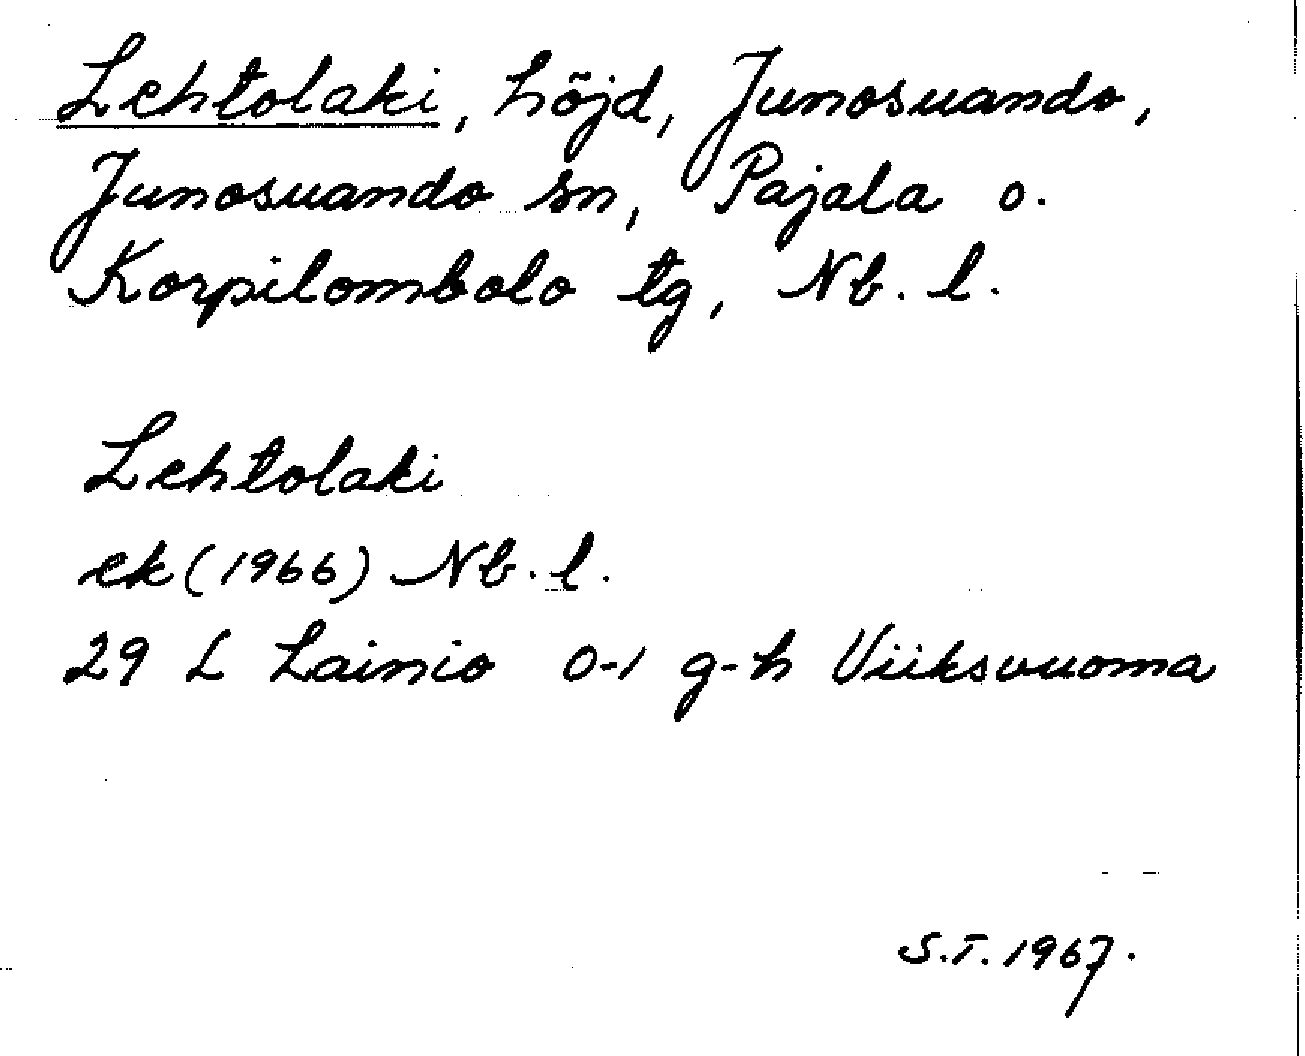 Lehtolaki, höjd, Junosuando,
Junosuando sn, Pajala o.
Korpilombolo tg, Nb. l.
Lehtolaki
ek (1966) Nb. l.
29 L Lainio 0-1 g-h Viiksvuoma
S.T. 1967.